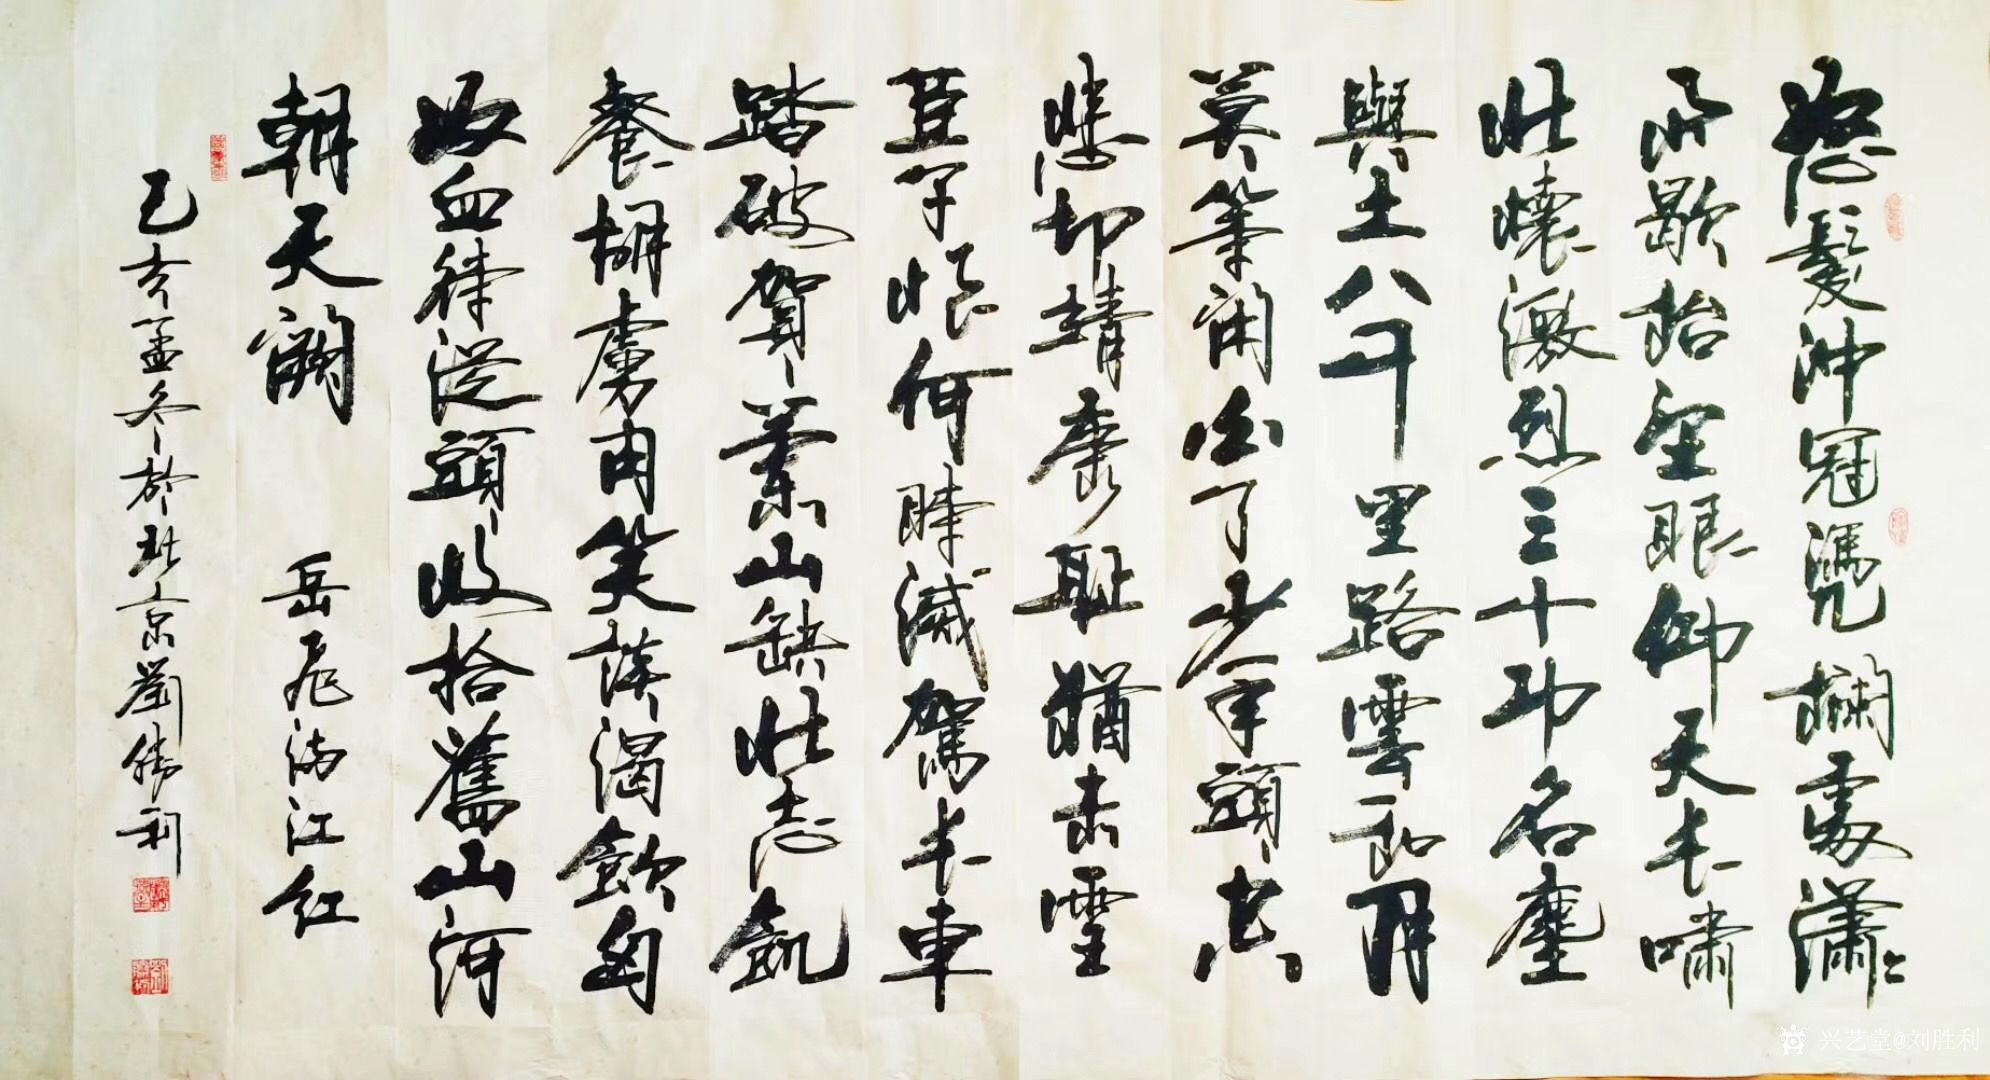 怒髮沖冠憑攔處瀟々
雨歇抬望眼仰天長嘯
壯懷激烈三十功名塵
與土八千里路雲和月
莫等閑白了少年頭空
悲切靖康耻猶未雪
臣子恨何時滅駕長車
踏破賀蘭山缺壯志飢
餐胡虜肉笑談渴飲匈
奴血待從頭收拾舊山河
朝天闕 岳飛滿江紅
己亥孟冬於北京劉勝利
兴艺堂@刘胜利